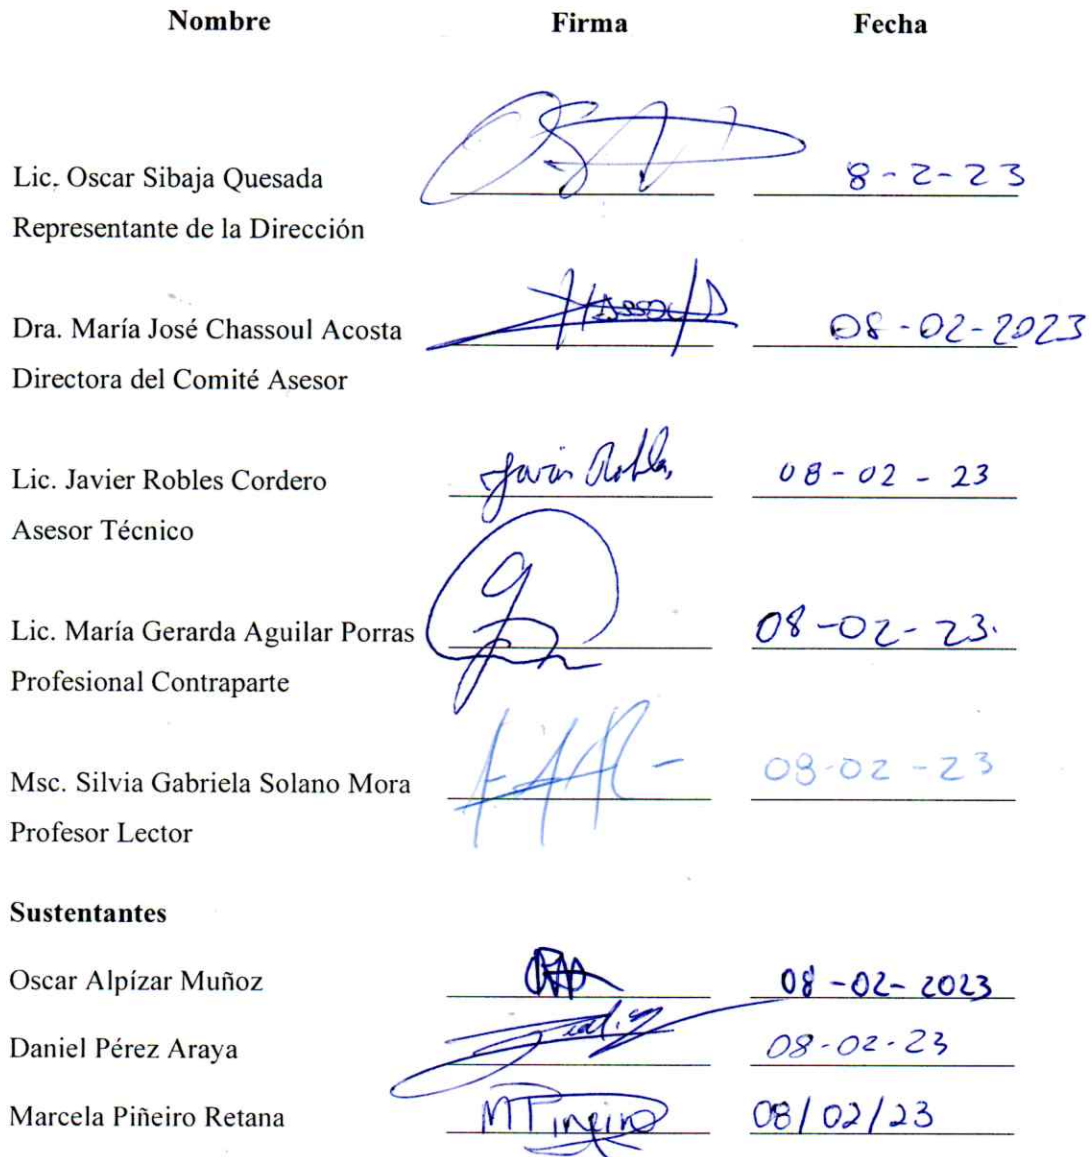 Nombre Firma Fecha
Lic. Oscar Sibaja Quesada 8-2-23
Representante de la Dirección
Dra. María José Chassoul Acosta 08-02-2023
Directora del Comité Asesor
Lic. Javier Robles Cordero Javier Robles 08-02-23
Asesor Técnico
Lic. María Gerarda Aguilar Porras 08-02-23.
Profesional Contraparte
Msc. Silvia Gabriela Solano Mora 08-02-23
Profesor Lector
Sustentantes
Oscar Alpízar Muñoz 08-02-2023
Daniel Pérez Araya 08-02-23
Marcela Piñeiro Retana MPiñeiro 08/02/23